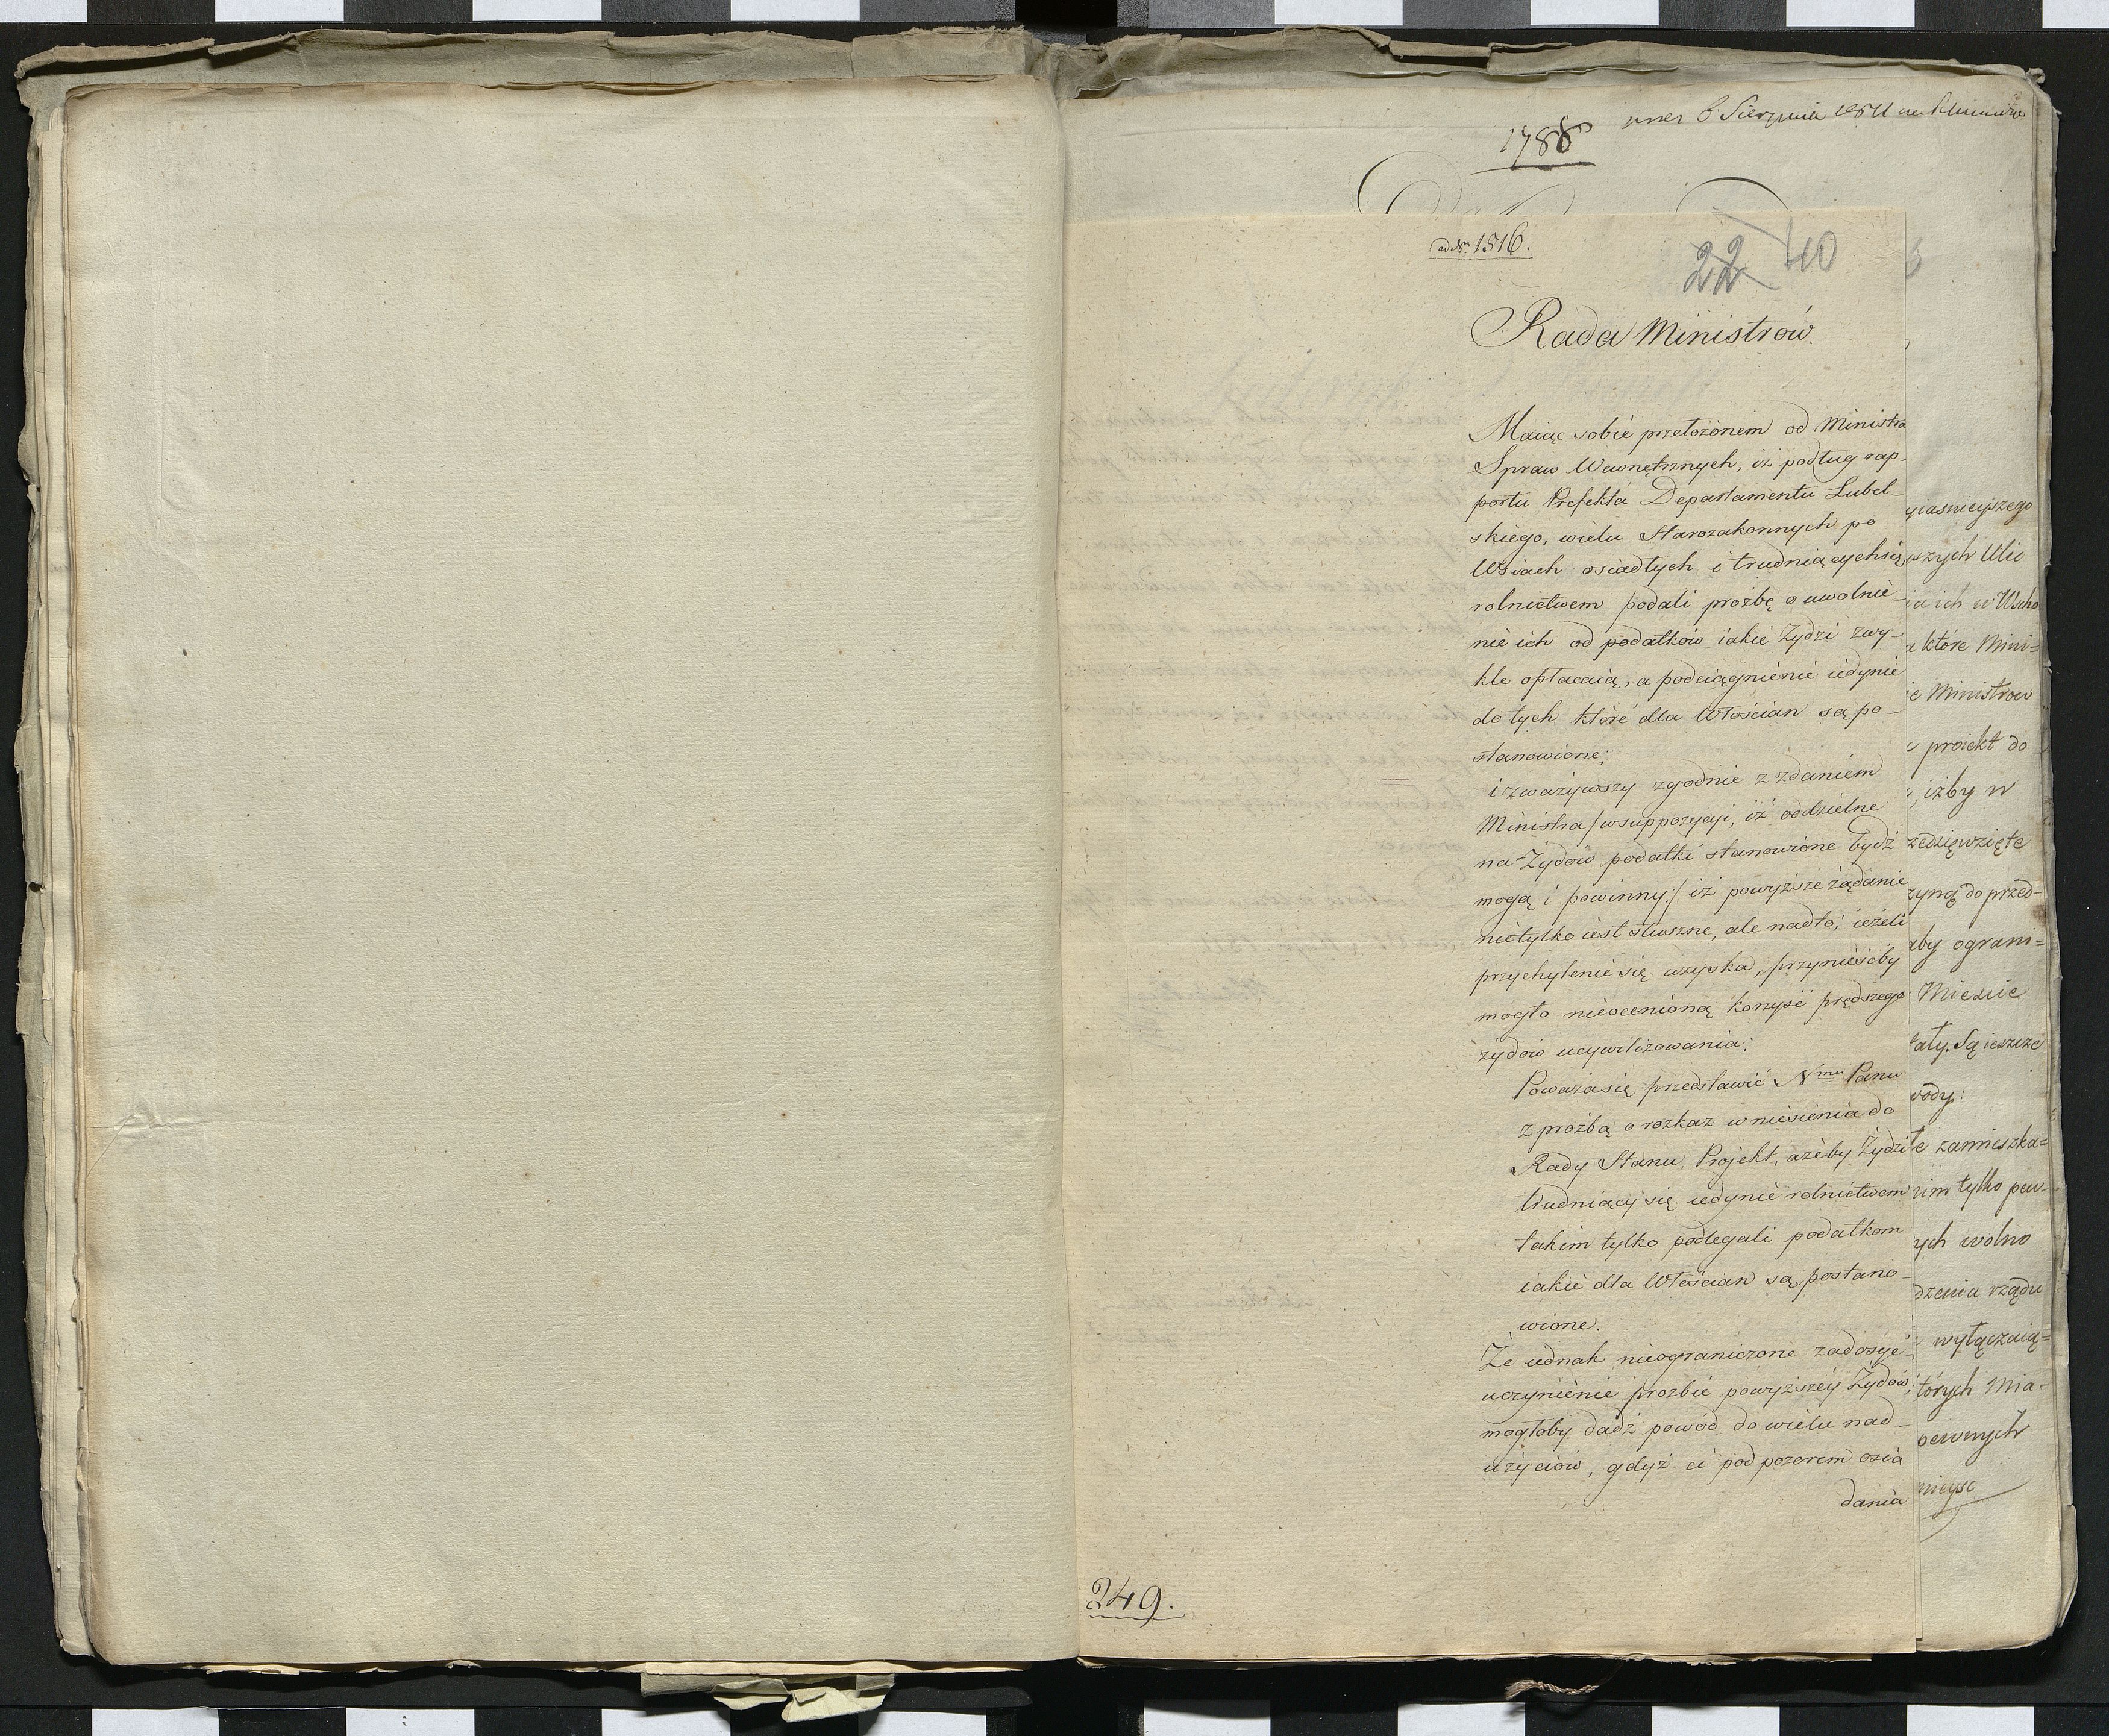 6 Sierpnia
1788
ad N° 1516.
22 40
Rada Ministrów.
Maiąc sobie przełożonem od Ministra
Spraw Wewnętrznych, iż podług rap-
portu Prefekta Departamentu Lubel-
skiego, wielu Starozakonnych po
Wsiach osiadłych i trudniących się
rolnictwem podali proźbę o uwolnie-
nie ich od podatków iakie Żydzi zwy-
kle opłacaią, a podciągnienie iedynie
do tych które dla Włościan są po-
stanowione;
i zważywszy zgodnie z zdaniem
Ministra /w suppozycyi, iż oddzielne
na Żydów podatki stanowione bydź
mogą i powinny:/ iż powyższe żądanie
nietylko iest słuszne, ale nadto, ieżeli
przychylenie się uzyska, przynieśćby
mogło nieocenioną korzyść prędszego
żydów ucywilizowania;
Poważa się przedstawić N^mu Panu
z proźbą o rozkaz wniesienia do
Rady Stanu, Projekt, ażeby Żydzi
trudniący się iedynie rolnictwem
takim tylko podlegali podatkom
iakie dla Włościan są postano-
wione.
Że iednak nieograniczone zadosyć-
uczynienie prozbie powyższey Żydów,
mogłoby dadź powód do wielu nad-
użyciów, gdyż ci pod pozorem osia
dania
249.
yiasnieyszego
wszych Ulic
ia ich w Wscho
które Mini=
ie Ministrow
proiekt do
, iżby w
zedzięwzięte
zyną do przed-
aby ograni=
Mieście
ały. Są ieszcze
wody:
te zamieszka=
rim tylko pew-
ych wolno
dzenia rządu
wyłączaią=
tórych Mia-
pewnych
mieysc